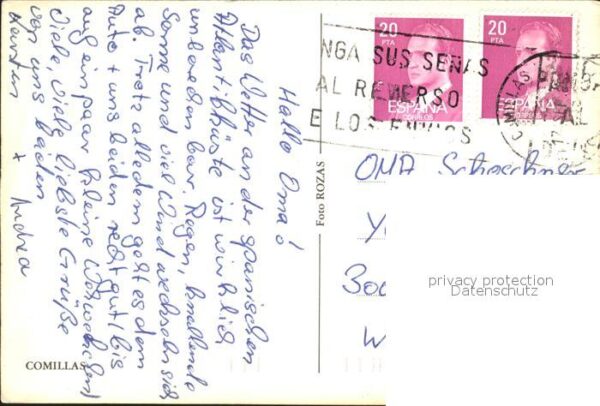 Hallo Oma!
Das Wetter an der spanischen
Atlantikküste ist wirklich
unberechenbar, Regen, knallende
Sonne und viel Wind wechseln sich
ab. Trotz alledem geht es dem
Auto + uns beiden recht gut (bis
auf ein paar kleine Wehwehchen)
Viele, viele liebste Grüße
von uns beiden
Kerstin + Andrea
COMILLAS
Foto ROZAS
20
PTA
ESPAÑA
CORREOS
20
PTA
ESPAÑA
CORREOS
NGA SUS SEÑAS
AL REVERSO
E LOS ENVIOS
COMILLAS
PONGA
AL
OMA
privacy protection
Datenschutz